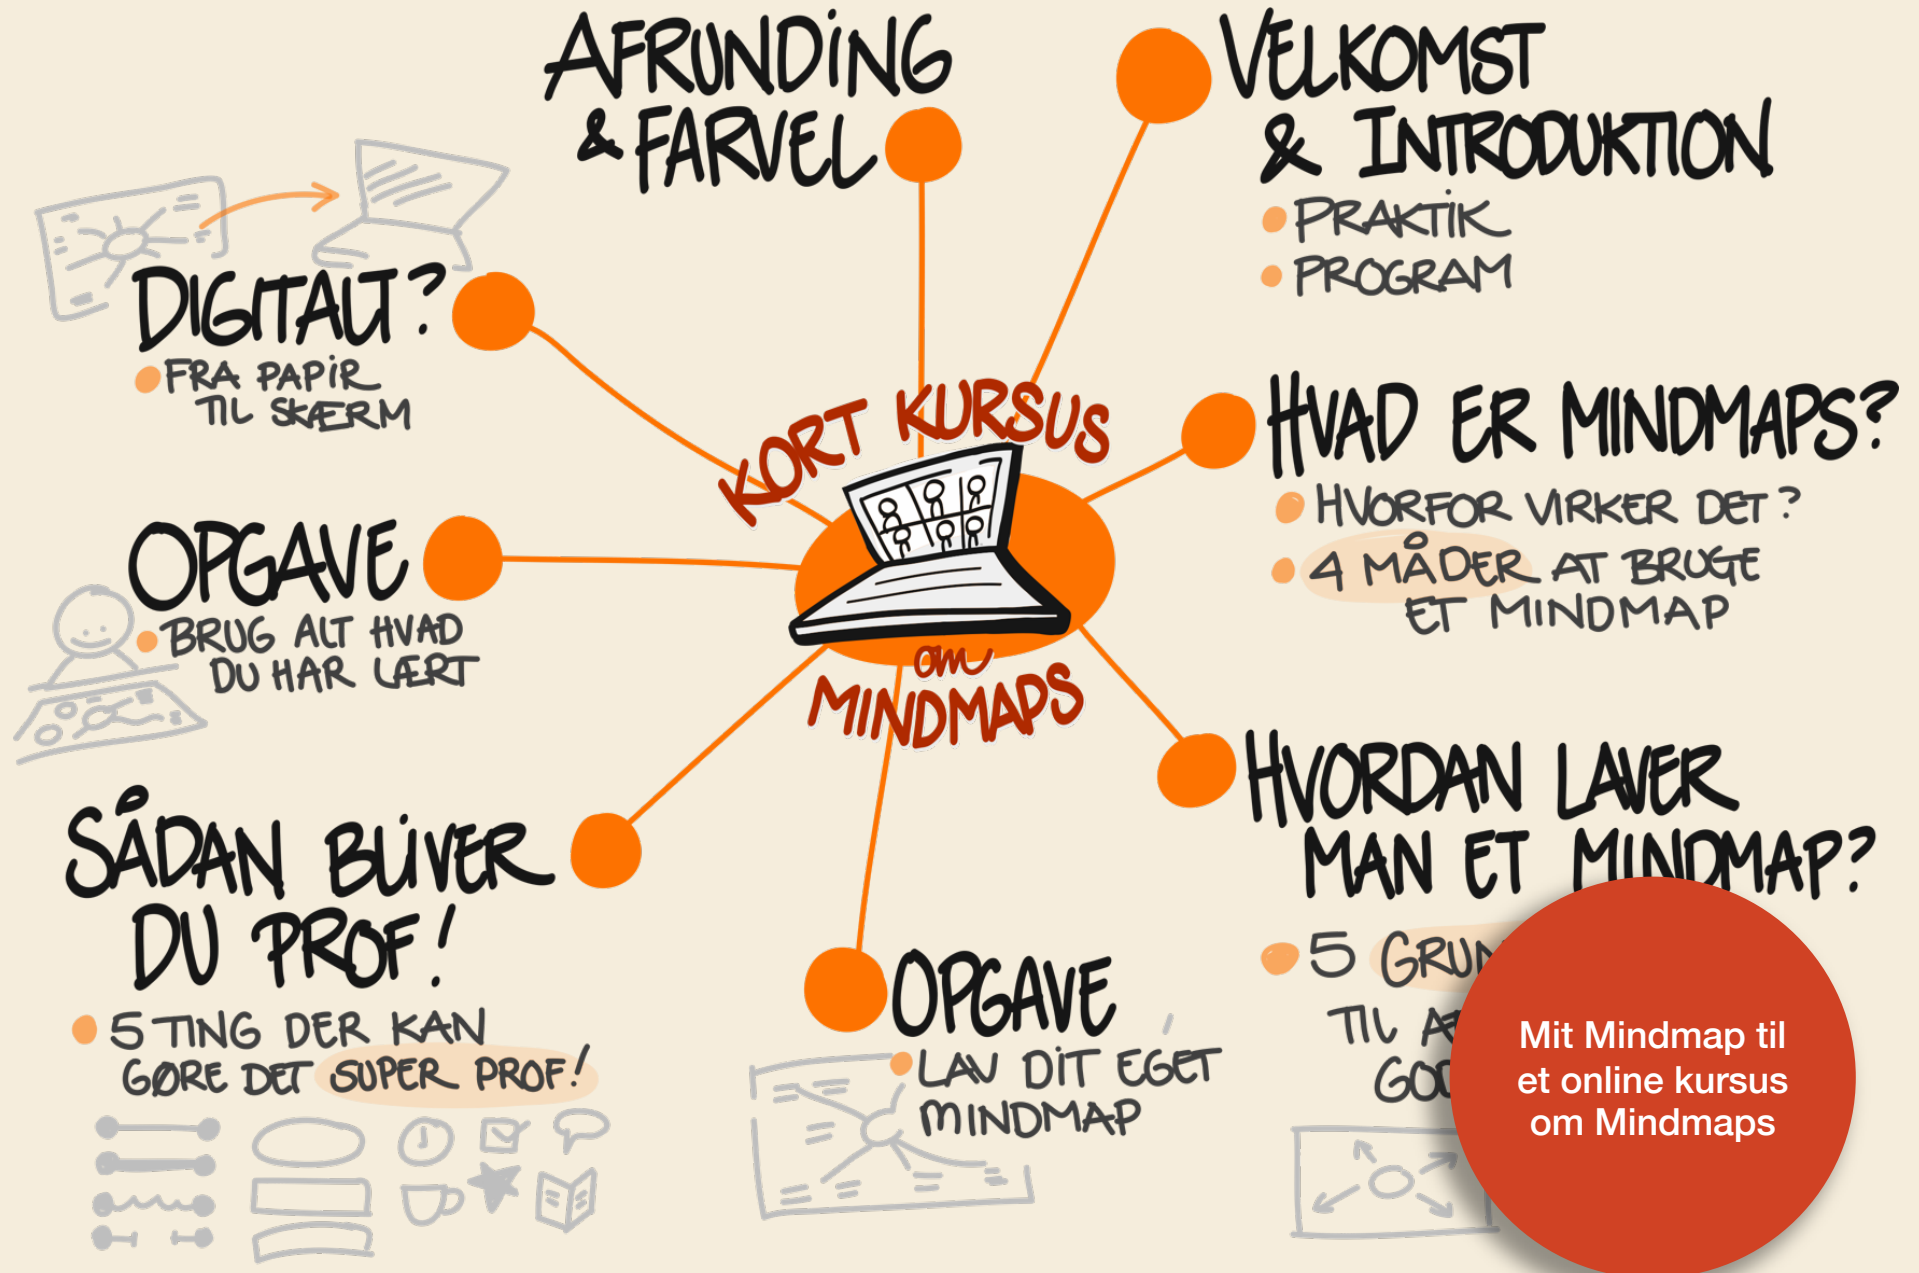 KORT KURSUS
om
MINDMAPS
VELKOMST
& INTRODUKTION
PRAKTIK
PROGRAM
HVAD ER MINDMAPS?
HVORFOR VIRKER DET?
4 MÅDER AT BRUGE
ET MINDMAP
HVORDAN LAVER
MAN ET MINDMAP?
5
TIL
Mit Mindmap til
et online kursus
om Mindmaps
OPGAVE
LAV DIT EGET
MINDMAP
SÅDAN BLIVER
DU PROF!
5 TING DER KAN
GØRE DET SUPER PROF!
OPGAVE
BRUG ALT HVAD
DU HAR LÆRT
DIGITALT?
FRA PAPIR
TIL SKÆRM
AFRUNDING
& FARVEL